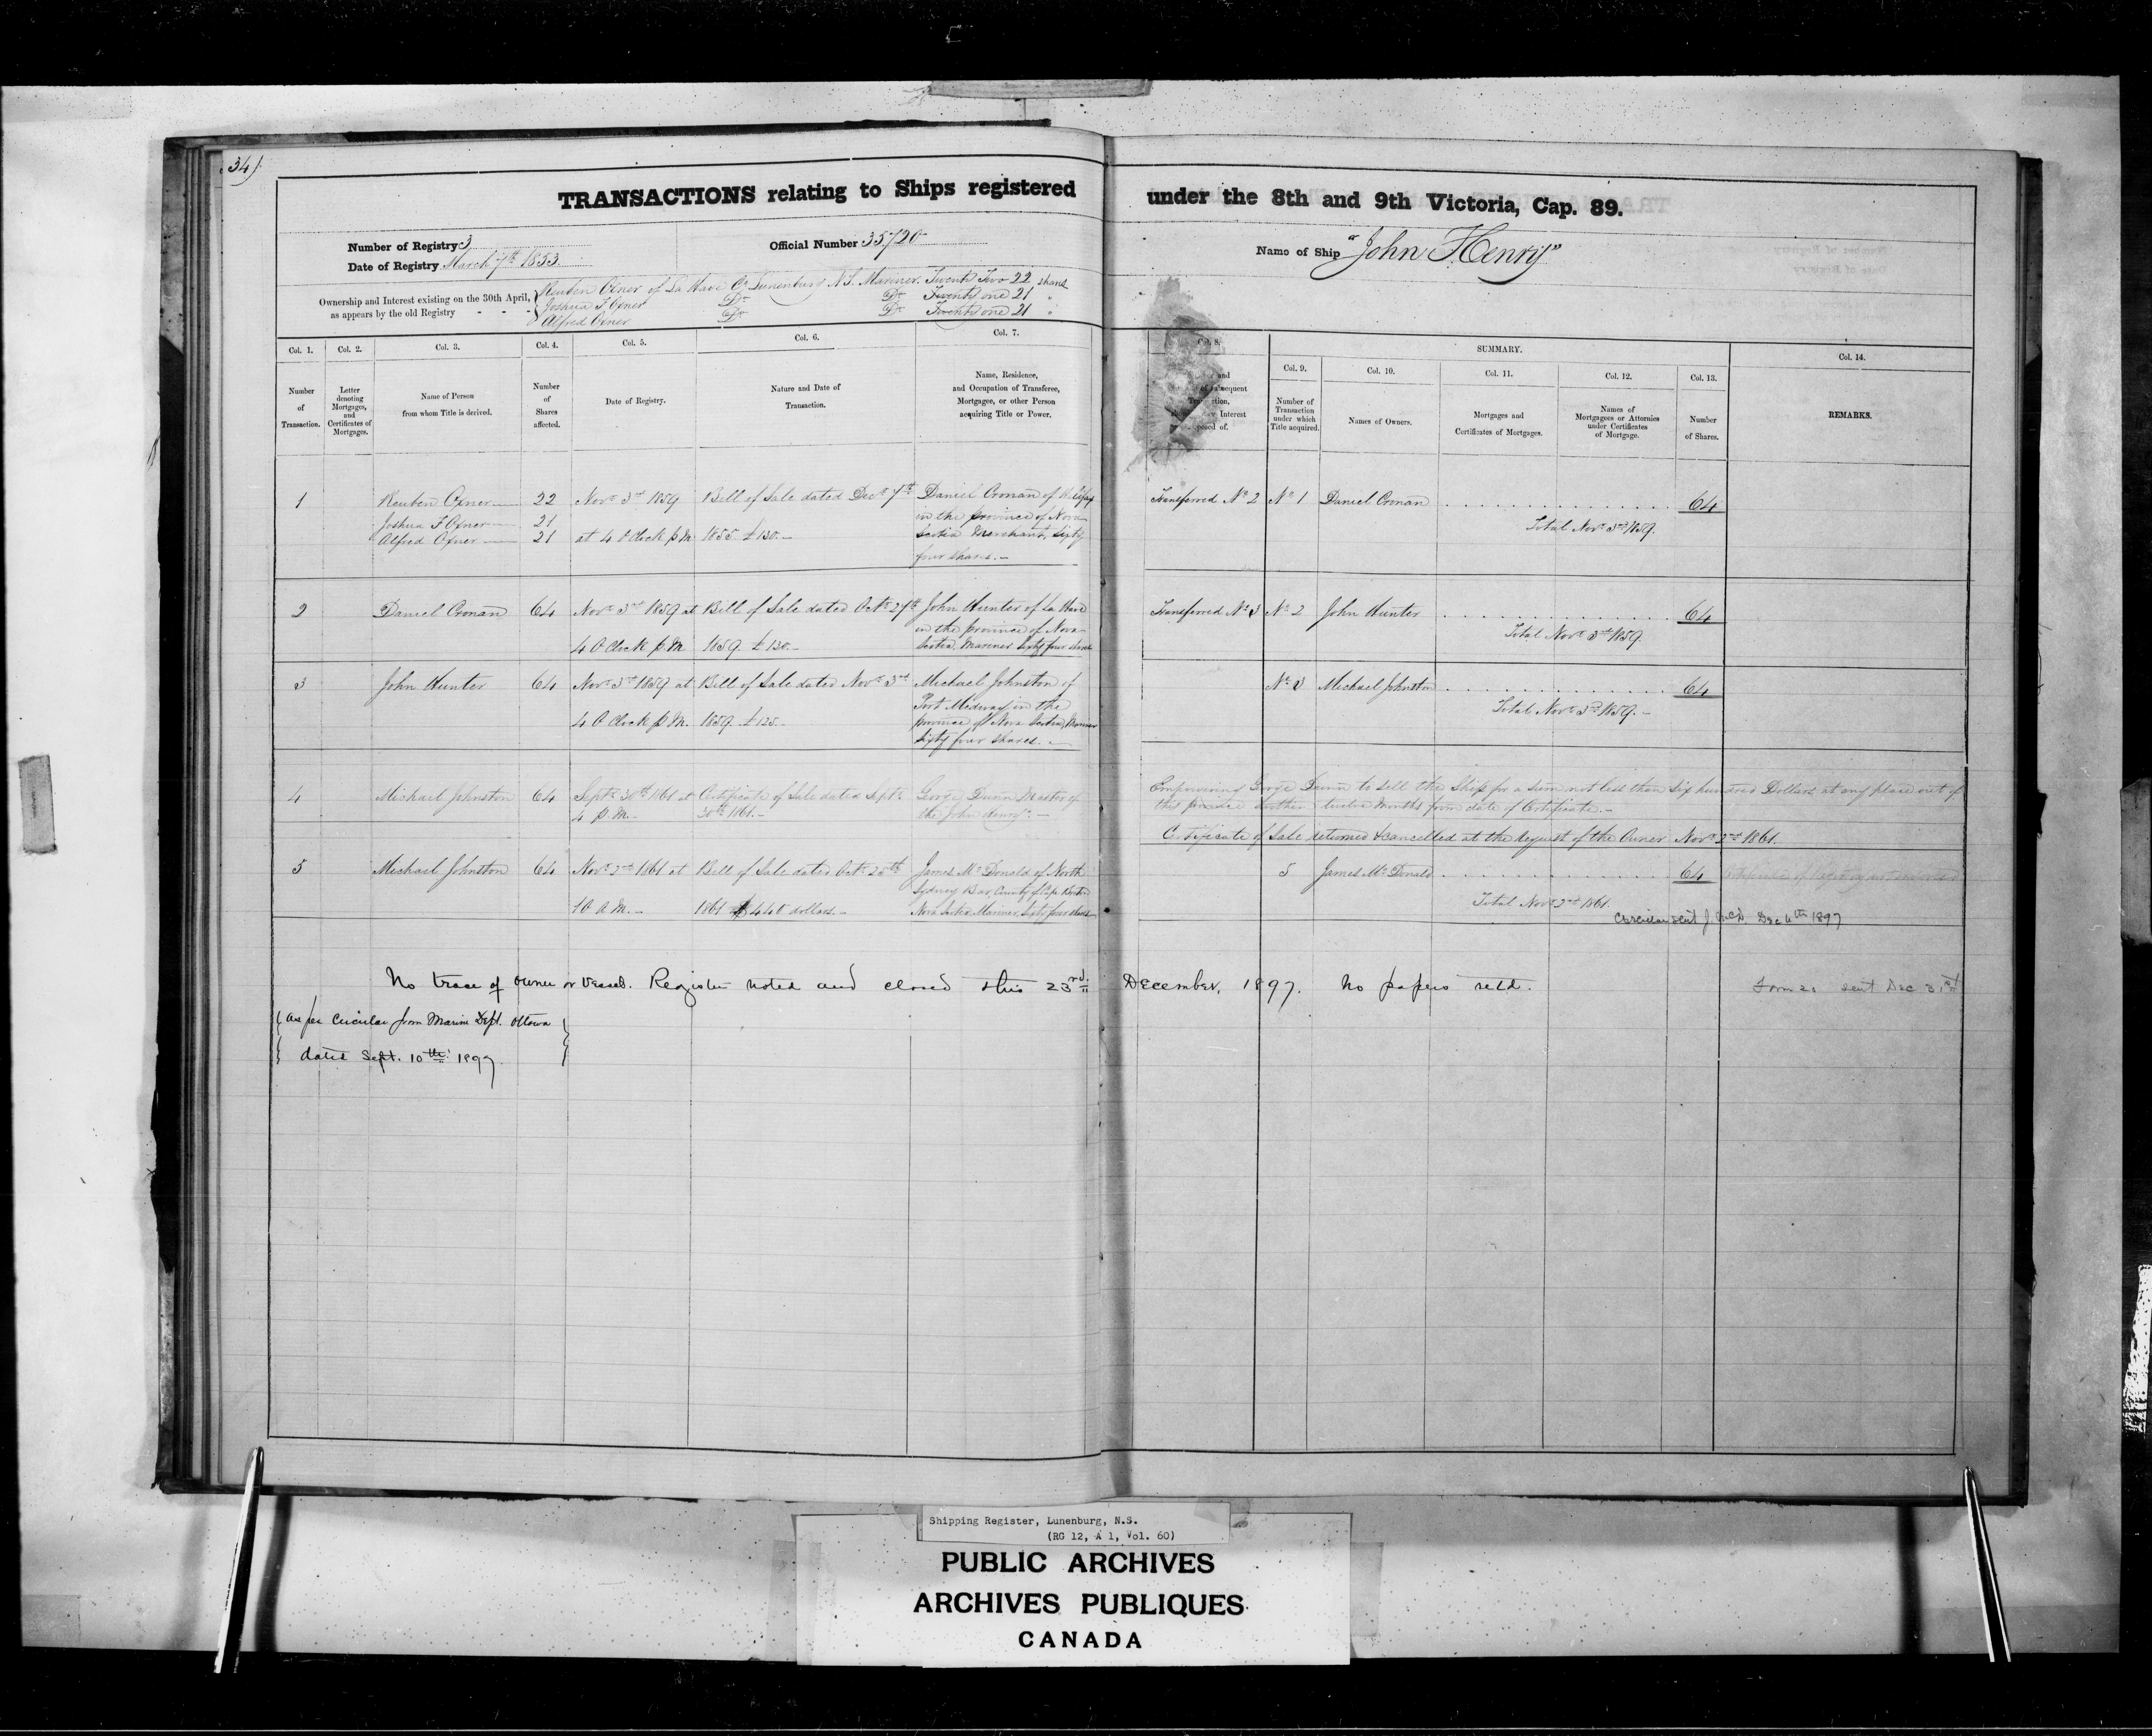 34).
TRANSACTIONS relating to Ships registered under the 8th and 9th Victoria, Cap. 89.
Number of Registry 3
Date of Registry March 7th 1853.
Official Number 35720
Name of Ship "John Henry"
Ownership and Interest existing on the 30th April,
as appears by the old Registry - - -
Reuben Oxner of La Have Co Lunenburg N.S. Mariner. Twenty Two 22 shares
Joshua F Oxner Do Do Twenty one 21 "
Alfred Oxner Do Do Twenty one 21 "
Col. 1. Col. 2. Col. 3. Col. 4. Col. 5. Col. 6. Col. 7. Col. 8. SUMMARY. Col. 14.
Col. 9. Col. 10. Col. 11. Col. 12. Col. 13.
Number
of
Transaction.
Letter
denoting
Mortgages,
and
Certificates of
Mortgages.
Name of Person
from whom Title is derived.
Number
of
Shares
affected.
Date of Registry.
Nature and Date of
Transaction.
Name, Residence,
and Occupation of Transferee,
Mortgagee, or other Person
acquiring Title or Power.
and
of subsequent
Interest
of.
Number of
Transaction
under which
Title acquired.
Names of Owners.
Mortgages and
Certificates of Mortgages.
Names of
Mortgagees or Attornies
under Certificates
of Mortgage.
Number
of Shares.
REMARKS.
1
Reuben Oxner 22
Joshua F Oxner 21
Alfred Oxner 21
Nov. 3rd 1859
at 4 O Clock p.M.
Bill of Sale dated Decr 7th
1855 £130.-
Daniel Cronan of Halifax
in the province of Nova
Scotia Merchant, Sixty
four shares.-
Transferred No 2 No 1 Daniel Cronan 64
Total Novr 3rd 1859.
2
Daniel Cronan 64
Novr 3rd 1859 at
4 O Clock p.M.
Bill of Sale dated Octr 27th
1859. £130.-
John Hunter of La Have
in the province of Nova
Scotia Mariner Sixty four shares
Transferred No 3 No 2 John Hunter 64
Total Novr 3rd 1859.
3
John Hunter 64
Novr 3rd 1859 at
4 O Clock p.M.
Bill of Sale dated Novr 3rd
1859. £125.-
Michael Johnston of
Port Medway in the
province of Nova Scotia, Mariner
Sixty four shares.-
No 3 Michael Johnston 64
Total Novr 3rd 1859.-
4
Michael Johnston 64
Septr 30th 1861 at
4 p.M.-
Certificate of Sale dated Septr
30th 1861.-
George Dunn Master of
the John Henry.-
Empowering George Dunn to sell the Ship for a sum not less than Six hundred Dollars at any place out of
this province twelve months from date of Certificate.-
Certificate of Sale returned & cancelled at the request of the Owner Novr 2nd 1861.
5
Michael Johnston 64
Novr 2nd 1861 at
10 A.M.-
Bill of Sale dated Octr 28th
1861 440 dollars.-
James McDonald of North
Sydney Bar, County of Cape Breton
Nova Scotia Mariner, Sixty four shares
5 James McDonald 64
Total Novr 2nd 1861.
Circular sent J. McD. Dec 4th 1897
No trace of owner or vessel. Register noted and closed this 23rd December, 1897. No papers retd.
Form 20 sent Dec 31st
as per circular from Marine Dept. Ottawa
dated Sept. 10th 1897.
Shipping Register, Lunenburg, N.S.
(RG 12, A 1, Vol. 60)
PUBLIC ARCHIVES
ARCHIVES PUBLIQUES
CANADA